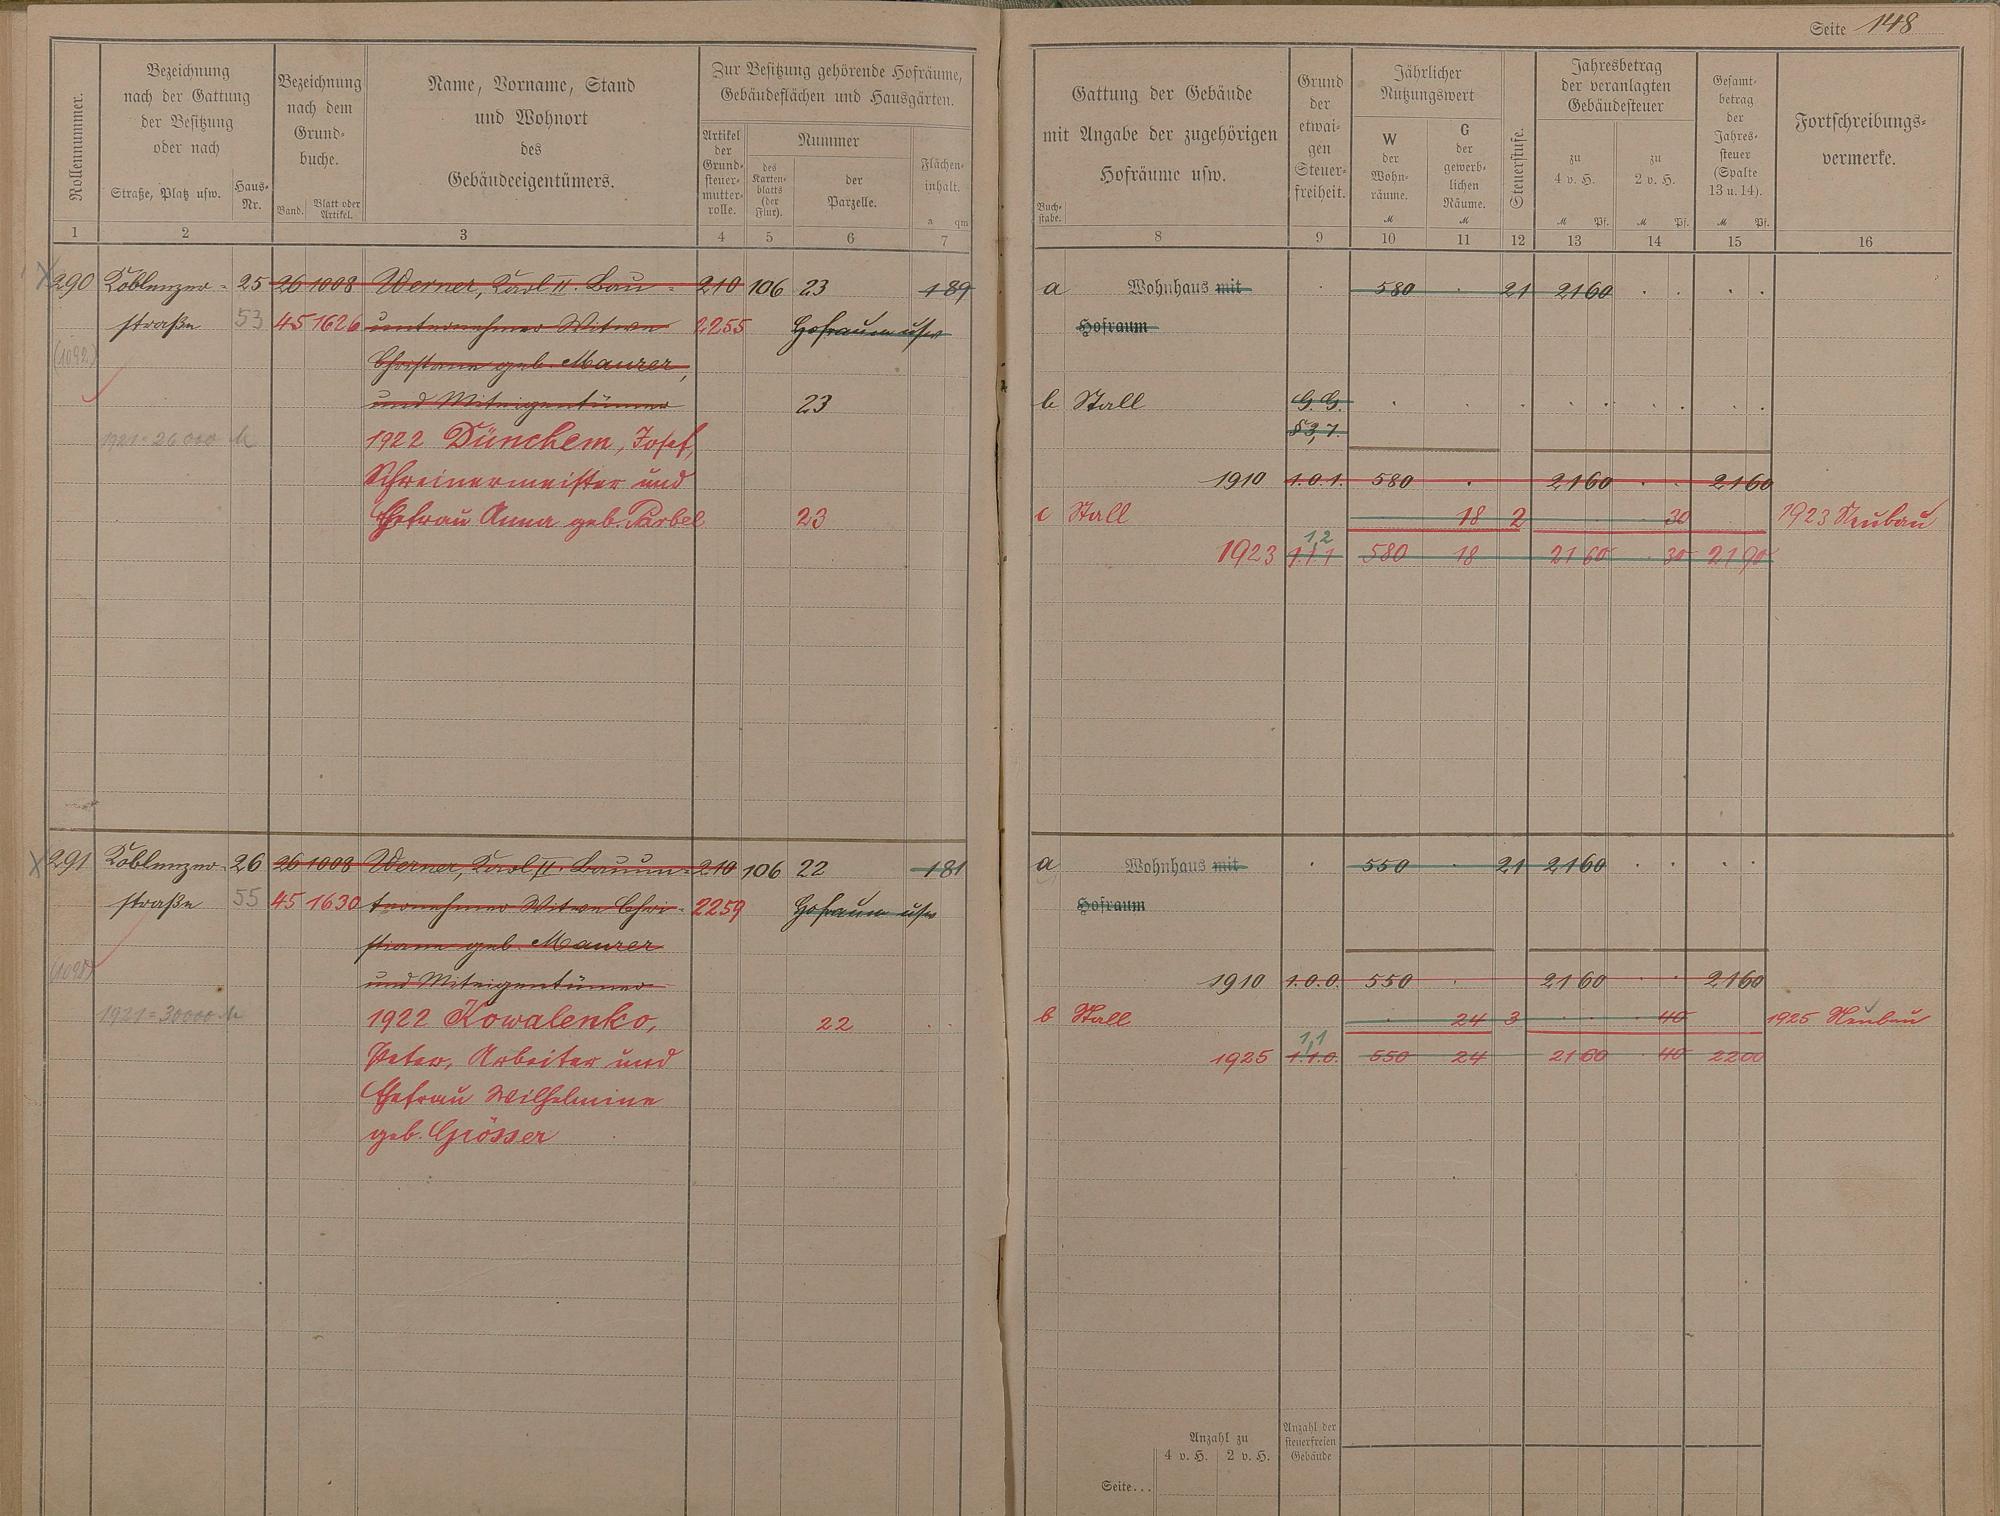 Seite 148
Rollennummer.
Bezeichnung
nach der Gattung
der Besitzung
oder nach
Straße, Platz usw.
Haus-
Nr.
Bezeichnung
nach dem
Grund-
buche.
Band.
Blatt oder
Artikel.
Name, Vorname, Stand
und Wohnort
des
Gebäudeeigentümers.
Zur Besitzung gehörende Hofräume,
Gebäudeflächen und Hausgärten.
Artikel
der
Grund-
steuer-
mutter-
rolle.
Nummer
des
Karten-
blatts
(der
Flur).
der
Parzelle.
Flächen-
inhalt.
a qm
1 2 3 4 5 6 7
290 Koblenzer- 25 26 1008 Werner, Karl II. Bau- 210 106 23 1 89
straße 53 45 1626 unternehmer Witwe 2255 Hofraum usw
(1092) Christiane geb. Maurer,
und Miteigentümer 23
1921 = 26000 M 1922 Dünchem, Josef,
Schreinermeister und
Ehefrau Anna geb. Parbel 23
291 Koblenzer- 26 26 1008 Werner, Karl II. Bauun- 210 106 22 1 81
straße 55 45 1630 ternehmer Witwe Chri- 2259 Hofraum usw
stiane geb. Maurer
und Miteigentümer
1921 = 30000 M 1922 Kowalenko, 22
Peter, Arbeiter und
Ehefrau Wilhelmine
geb. Grösser
Gattung der Gebäude
mit Angabe der zugehörigen
Hofräume usw.
Buch-
stabe.
Grund
der
etwai-
gen
Steuer-
freiheit.
Jährlicher
Nutzungswert
W
der
Wohn-
räume.
M
G
der
gewerb-
lichen
Räume.
M
Steuerstufe.
Jahresbetrag
der veranlagten
Gebäudesteuer
zu
4 v. H.
M Pf.
zu
2 v. H.
M Pf.
Gesamt-
betrag
der
Jahres-
steuer
(Spalte
13 u. 14).
M Pf.
Fortschreibungs-
vermerke.
8 9 10 11 12 13 14 15 16
a Wohnhaus mit 580 21 21 60
Hofraum
b Stall G. G.
§ 3, 7.
1910 1.0.1. 580 21 60 21 60
c Stall 18 2 30 1923 Neubau
1,2
1923 1.1.1 580 18 21 60 30 21 90
a Wohnhaus mit 550 21 21 60
Hofraum
1910 1.0.0. 550 21 60 21 60
b Stall 24 3 40 1925 Neubau
1,1
1925 1.1.0. 550 24 21 60 40 22 00
Anzahl zu
4 v. H. 2 v. H.
Anzahl der
steuerfreien
Gebäude
Seite...